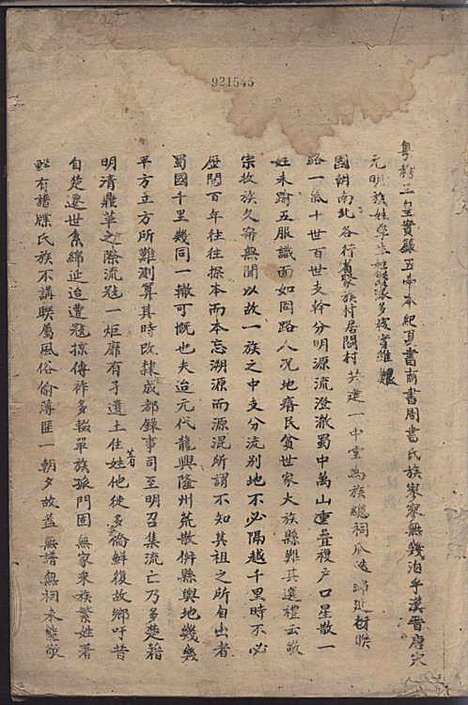 921545
粵稽三皇實錄五帝本紀真書前書周書氏族寥寥無幾洎乎漢晉唐宋
元明族姓
國朝南北各行省家族村居閭村共建一中堂為族總祠瓜
路一派十世百世支幹分明源流澄澈蜀中萬山重疊稷戶口星散一
姓未附五服識面如同路人況地瘠民貧世家大族縣難其選禮云敬
宗收族久奇無聞以故一族之中支分流別地不必隔越千里時不必
歷閱百年往往探本而本忘溯源而源混所謂不知其祖之所自出者
蜀國千里幾同一轍可慨也夫迨元代龍興隆州荒散併縣輿地幾幾
平方立方所難測算其時改隸成都錄事司至明召集流亡乃多楚籍
明清鼎革之際流寇一炬靡有孑遺土著住姓他徙多倫鮮復故鄉吁昔
自楚遷世系綿延迨遭寇掠傳祚多輟單族孤門固無家乘族繁姓著
鮮有譜牒氏族不講聯屬風俗偷薄匪一朝夕故蓋無譜無祠未能敬